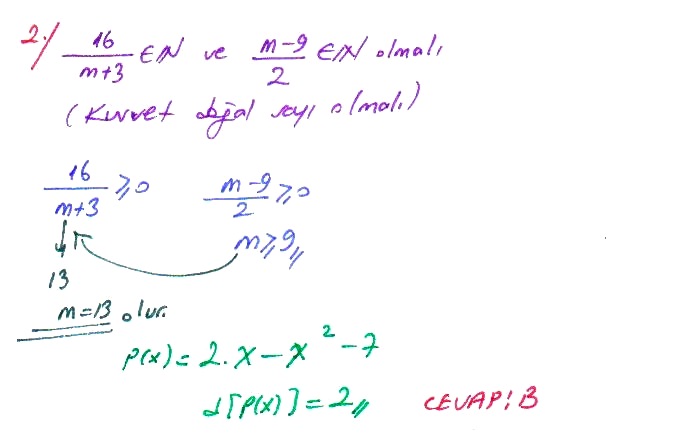 2-) 16/(m+3) ∈ N ve (m-9)/2 ∈ N olmalı
(Kuvvet doğal sayı olmalı)
16/(m+3) ≥ 0 (m-9)/2 ≥ 0
m ≥ 9
13
m=13 olur.
P(x) = 2.x - x² - 7
d[P(x)] = 2 CEVAP: B